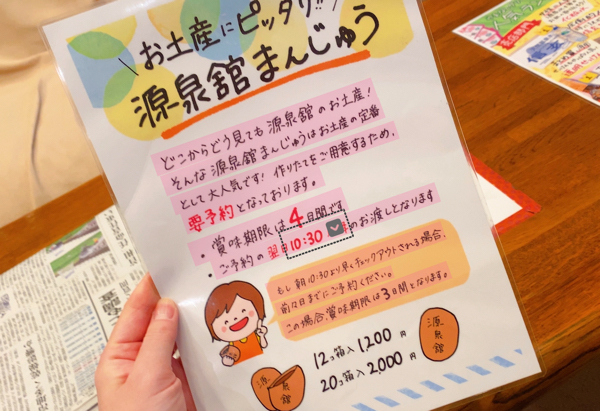 お土産にピッタリ!!
源泉舘まんじゅう
どこからどう見ても源泉舘のお土産!
そんな源泉舘まんじゅうはお土産の定番
として大人気です!作りたてをご用意するため、
要予約となっております。
・賞味期限は4日間です
・ご予約の翌 10:30 のお渡しとなります
もし朝10:30より早くチェックアウトされる場合、
前々日までにご予約ください。
この場合、賞味期限は3日間となります。
12コ箱入 1,200円
20コ箱入 2,000円
源泉舘
源泉舘